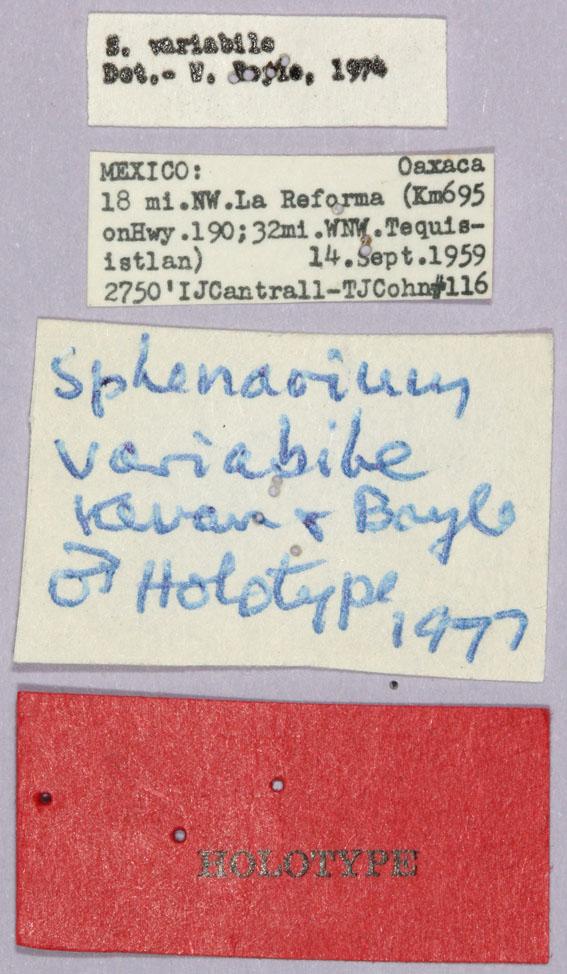 S. variabile
Det.- V. Boyle, 1974
MEXICO: Oaxaca
18 mi.NW.La Reforma (Km695
onHwy.190;32mi.WNW.Tequis-
istlan) 14.Sept.1959
2750'IJCantrall-TJCohn#116
Sphenarium
variabile
Kevan & Boyle
♂ Holotype
1977
HOLOTYPE